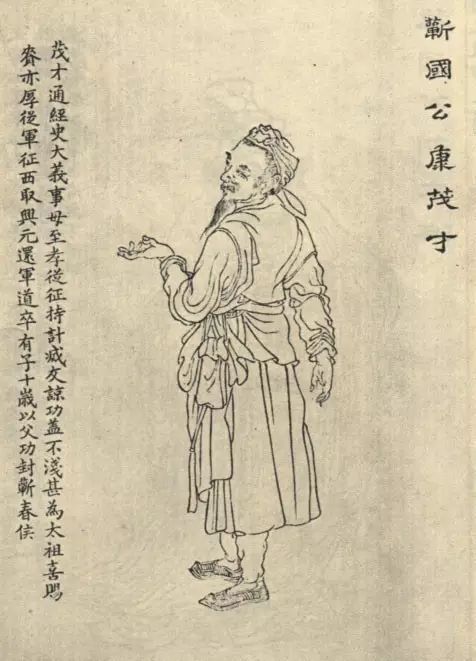 蘄國公康茂才
茂才通經史大義事母至孝從征持計臧友諒功蓋不淺甚為太祖喜賜
賚亦厚從軍征西取興元還軍道卒有子十歲以父功封蘄春侯